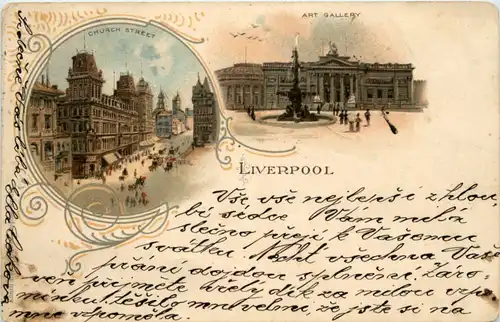 CHURCH STREET
ART GALLERY
LIVERPOOL
Vše, vše nejlepší z hlou
bi srdce Vám milá
slečno přeji k Vašemu
svátku. Nechť všechna Vaše
přání dojdou splnění. Záro-
veň přijmete vřelý dík za milou vzpo
mínku! těšilo mne velmi, že jste si na
mne vzpoměla.